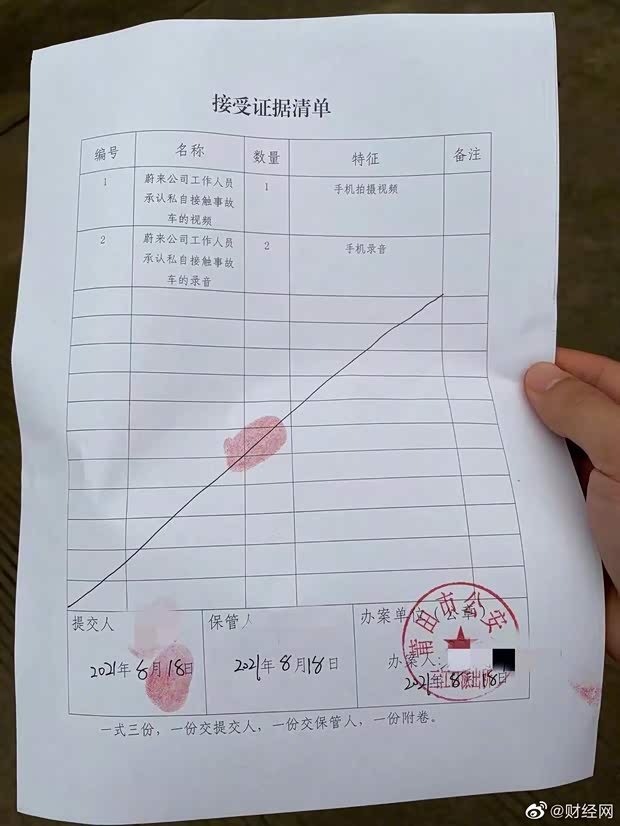 接受证据清单
编号 名称 数量 特征 备注
1 蔚来公司工作人员承认私自接触事故车的视频 1 手机拍摄视频
2 蔚来公司工作人员承认私自接触事故车的录音 2 手机录音
提交人 保管人 办案单位(公章)
办案人:
2021年8月18日 2021年8月18日 2021年8月18日
莆田市公安
派出
一式三份，一份交提交人，一份交保管人，一份附卷。
@财经网